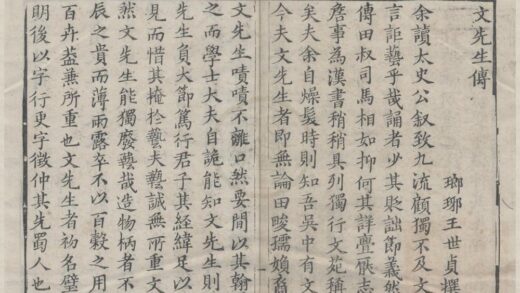 文先生傳
瑯琊王世貞撰
余讀太史公叙致九流顧獨不及文
言詎藝乎哉誦者少其貶詘節義然
傳田叔司馬相如抑何其詳亹志
詹事為漢書稍稍具列獨行文苑稱
矣夫余自燥髮時則知吾吳中有文
今夫文先生者即無論田畯孺嬾裔
文先生嘖嘖不離口然要間以其翰
之而學士大夫自詭能知文先生則
先生負大節篤行君子其經緯足以
見而惜其掩於藝夫藝誠無所重文
然文先生能獨廢藝哉造物柄者不
辰之貴而薄雨露卒不以百穀之用
百卉葢兼所重也文先生者初名璧
明後以字行更字徵仲其先蜀人也